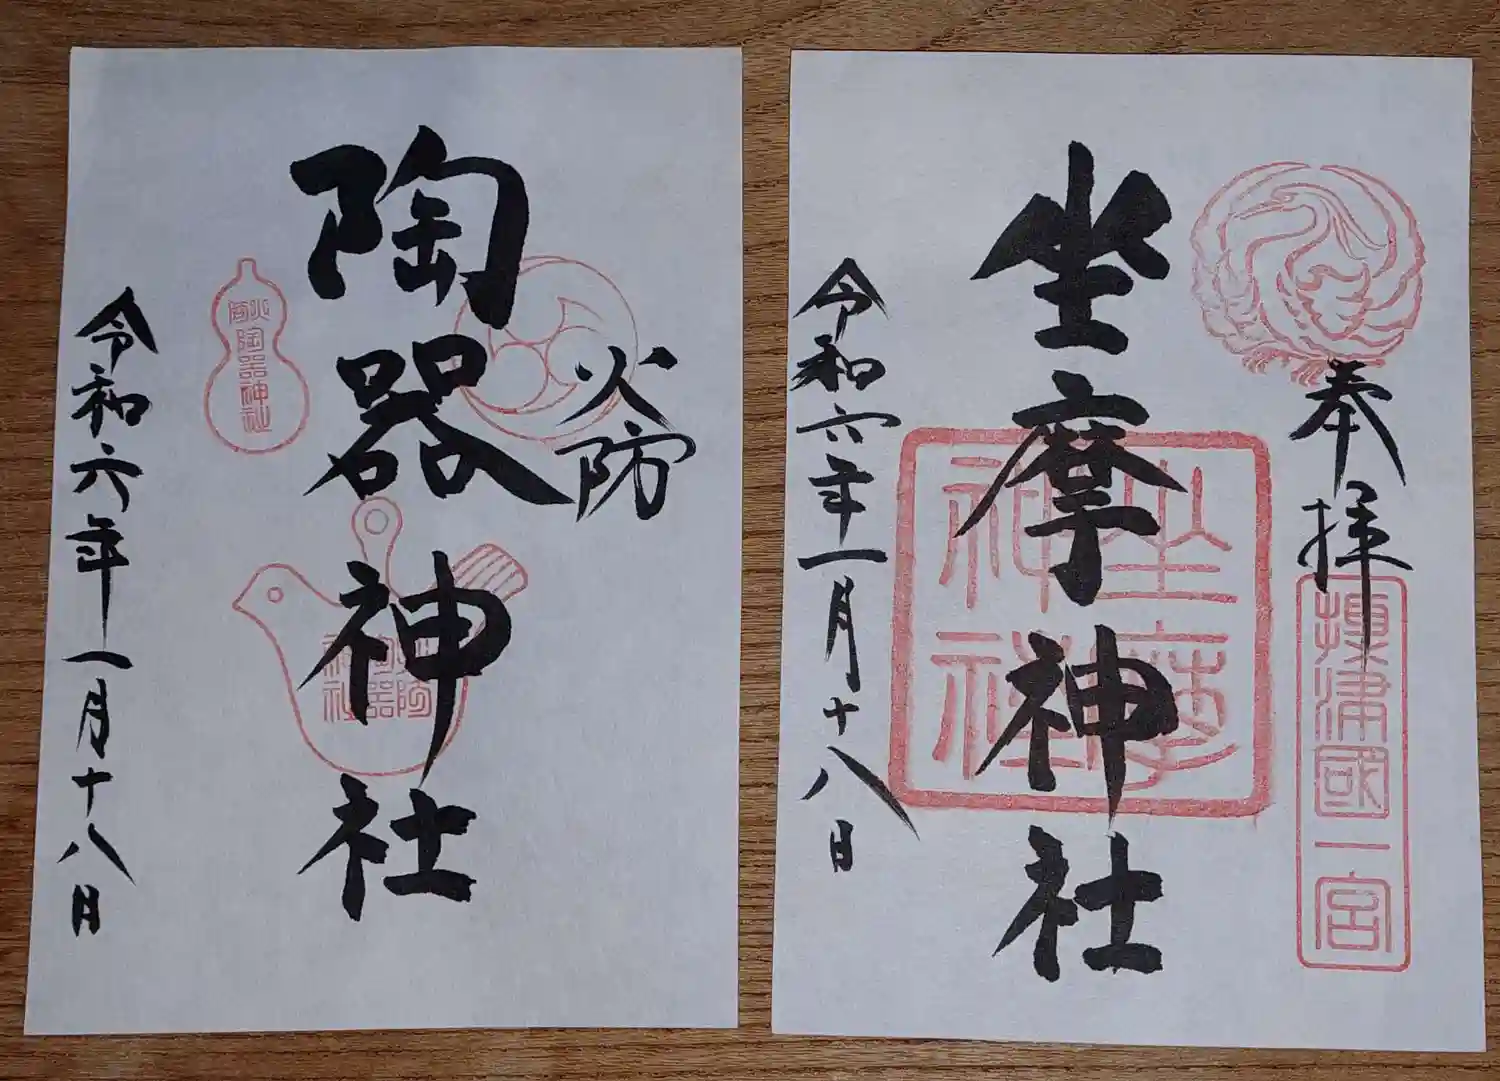 奉拝
摂津國一宮
坐摩神社
坐摩
神社
令和六年一月十八日
火防
陶器神社
火防
陶器神社
火防
陶器
神社
令和六年一月十八日